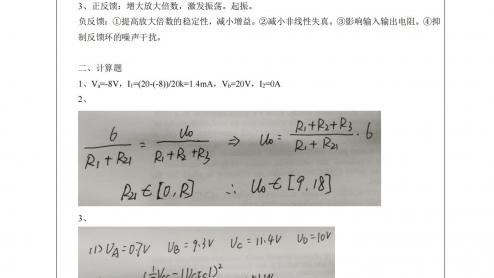 3、正反馈：增大放大倍数，激发振荡。起振。
负反馈：①提高放大倍数的稳定性，减小增益。②减小非线性失真。③影响输入输出电阻。④抑
制反馈环的噪声干扰。
二、计算题
1、Va=-8V，I1=(20-(-8))/20k=1.4mA，Vb=20V，I2=0A
2、
6/(R1+R21) = U0/(R1+R2+R3) ⇒ U0 = (R1+R2+R3)/(R1+R21) · 6
R21 ∈ [0,R] ∴ U0 ∈ [9,18]
3、
(1) UA=0.7V UB=9.3V UC=11.4V UD=10V